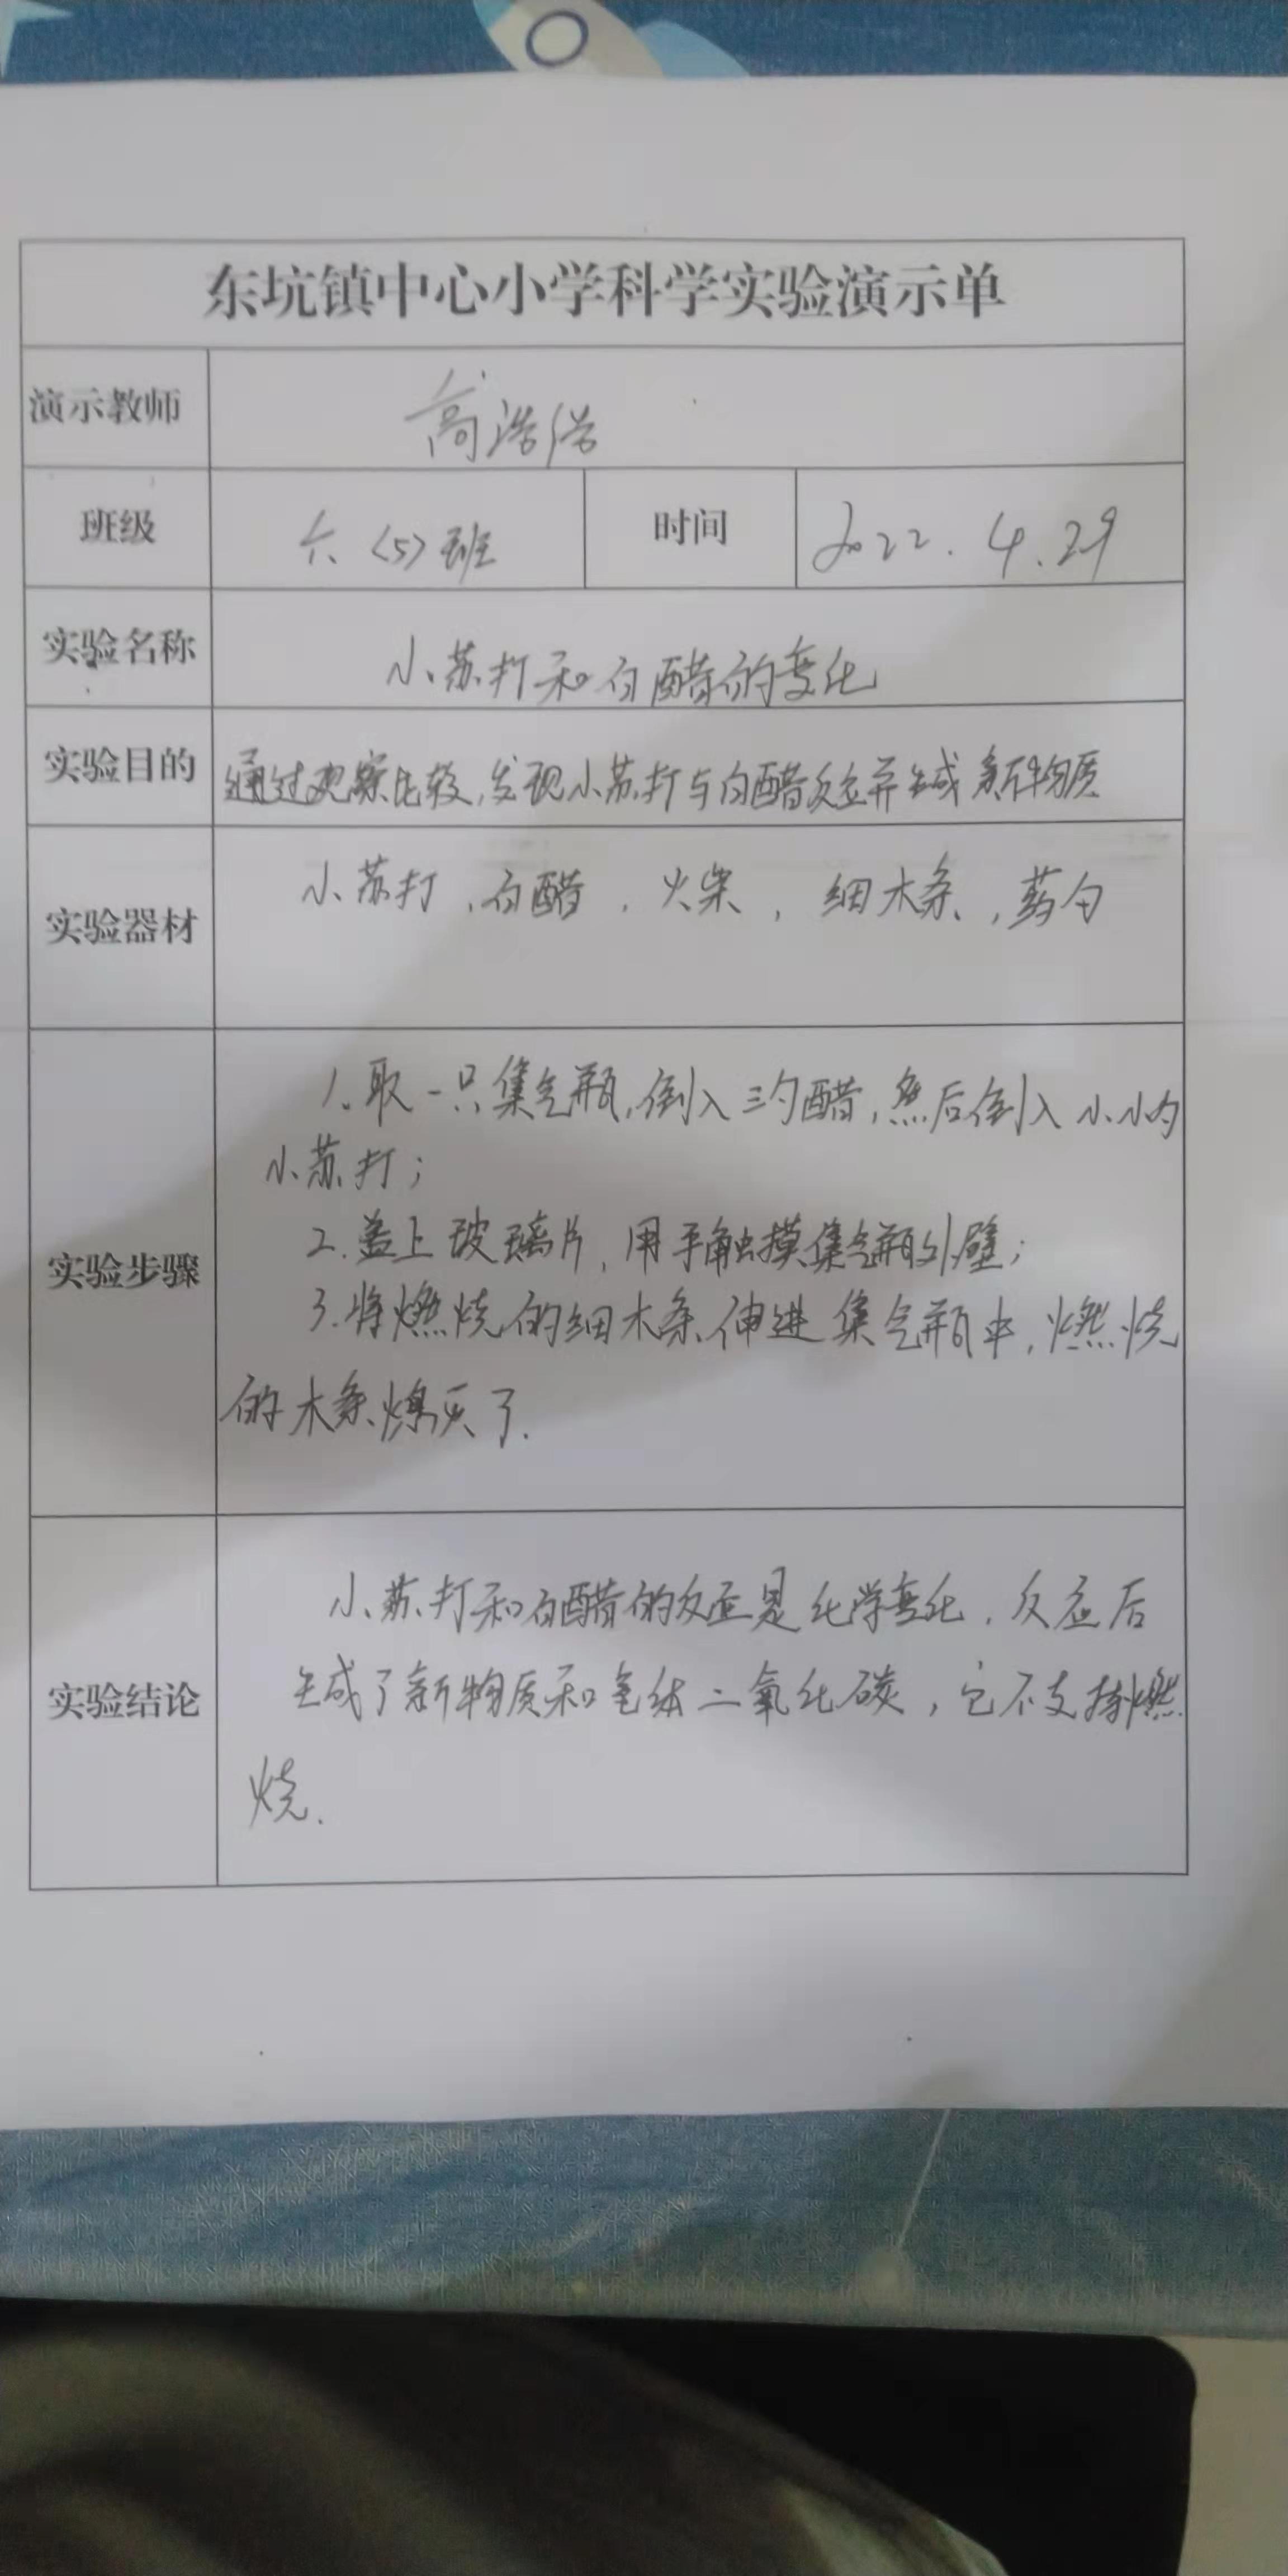 东坑镇中心小学科学实验演示单
演示教师 高浩
班级 六〈5〉班 时间 2022.4.29
实验名称 小苏打和白醋的变化
实验目的 通过观察比较,发现小苏打与白醋反应并生成新物质
实验器材 小苏打,白醋,火柴,细木条,药勺
1.取一只集气瓶,倒入三勺醋,然后倒入
小苏打;
2.盖上玻璃片,用手触摸集气瓶外壁;
实验步骤
3.将燃烧的细木条伸进集气瓶中,燃烧
的木条熄灭了.
小苏打和白醋的反应是化学变化,反应后
实验结论 生成了新物质和气体二氧化碳,它不支持燃
烧.